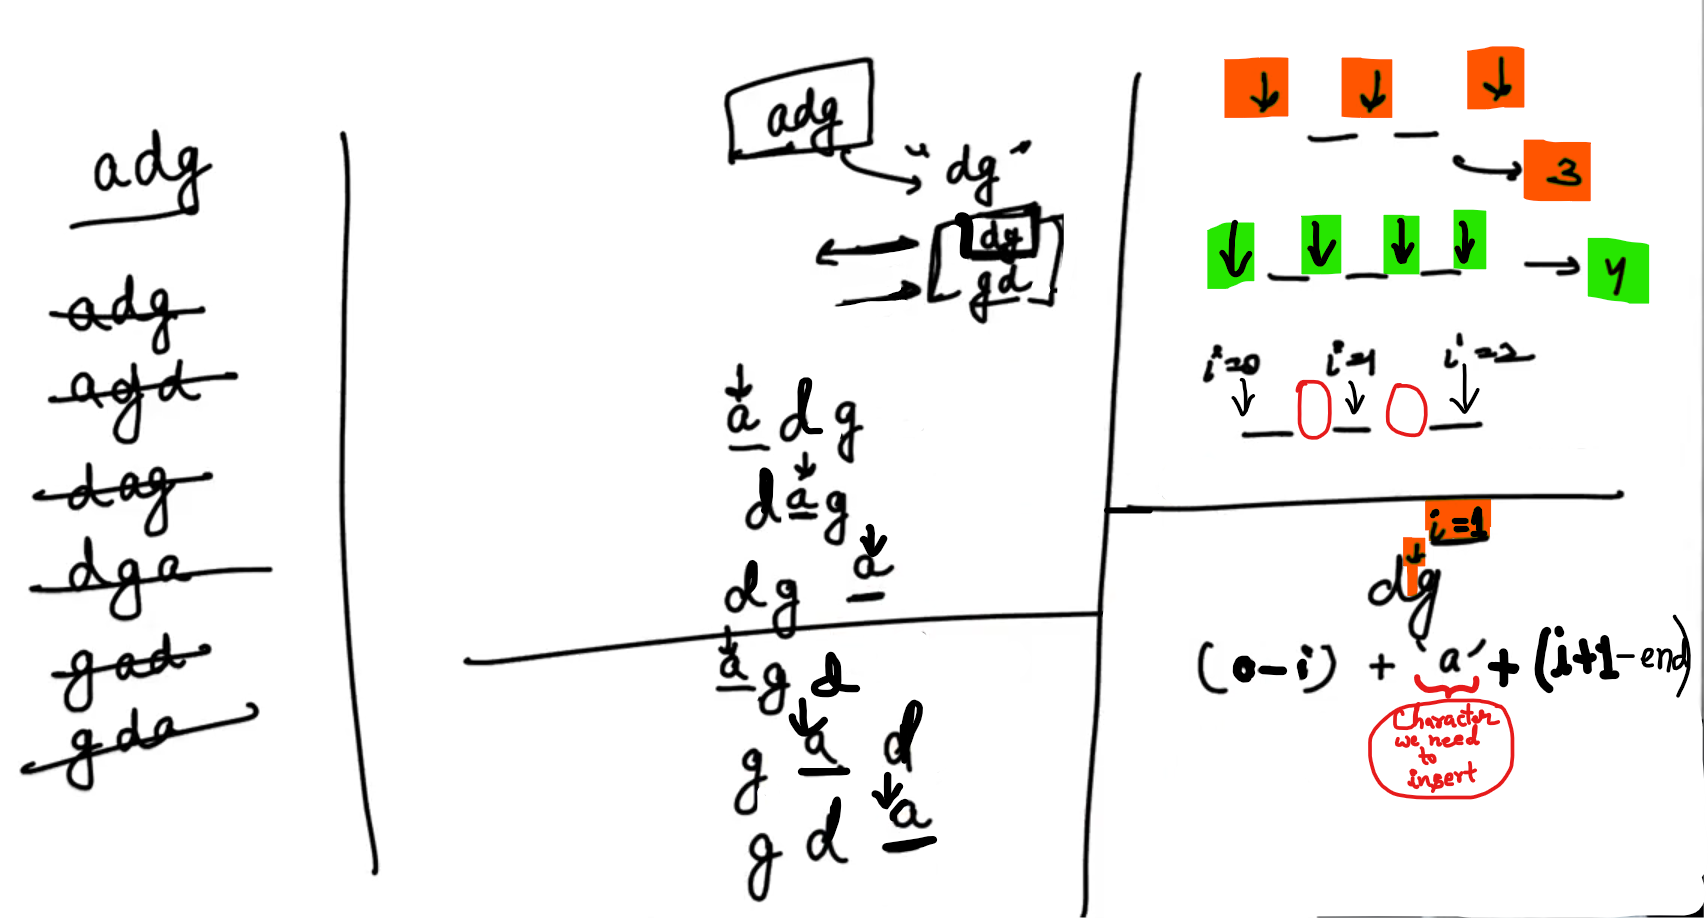 adg
adg
agd
dag
dga
gad
gda
adg
" dg "
dg
gd
a d g
d a g
d g a
a g d
g a d
g d a
3
4
i=0 i=1 i=2
i=1
dg
(0-i) + 'a' + (i+1-end)
Character
we need
to
insert